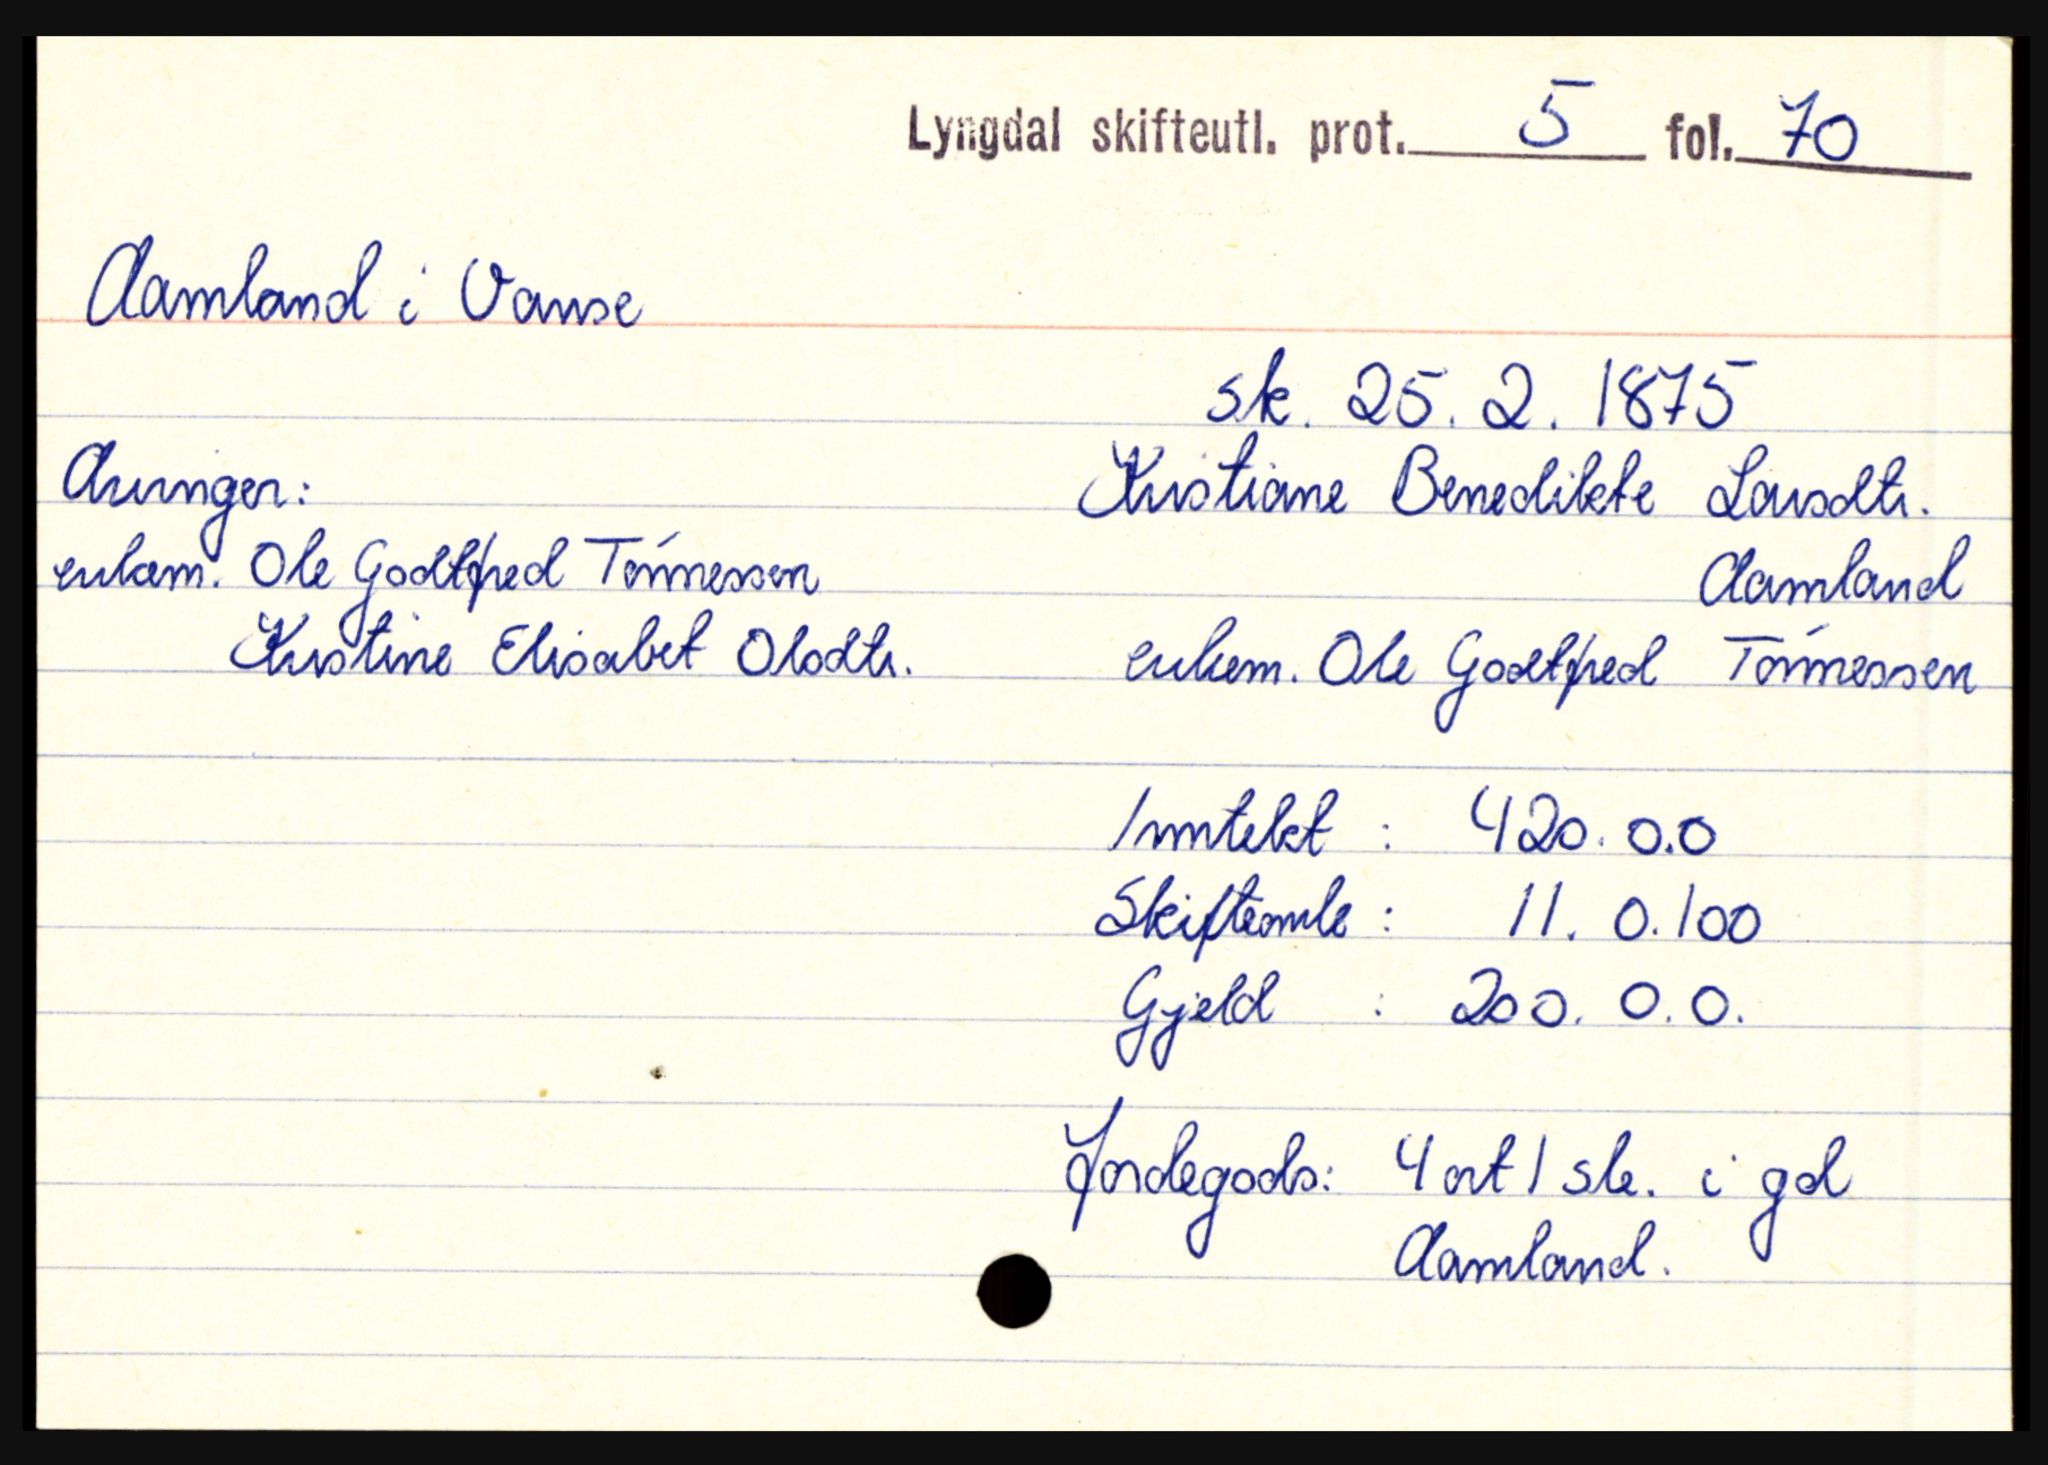 Lyngdal skifteutl. prot. 5 fol. 70
Aamland i Vanse
sk. 25. 2. 1875
Arvinger:
Kristiane Benedikte Larsdtr.
Aamland
enkem. Ole Godtfred Tónnessen
Kristine Elisabet Olsdtr.
enkem. Ole Godtfred Tónnessen
Inntekt : 420. 0.0
Skifteomk : 11. 0.100
Gjeld : 200. 0.0.
Jordegods: 4 ort 1 sk. i gd
Aamland.